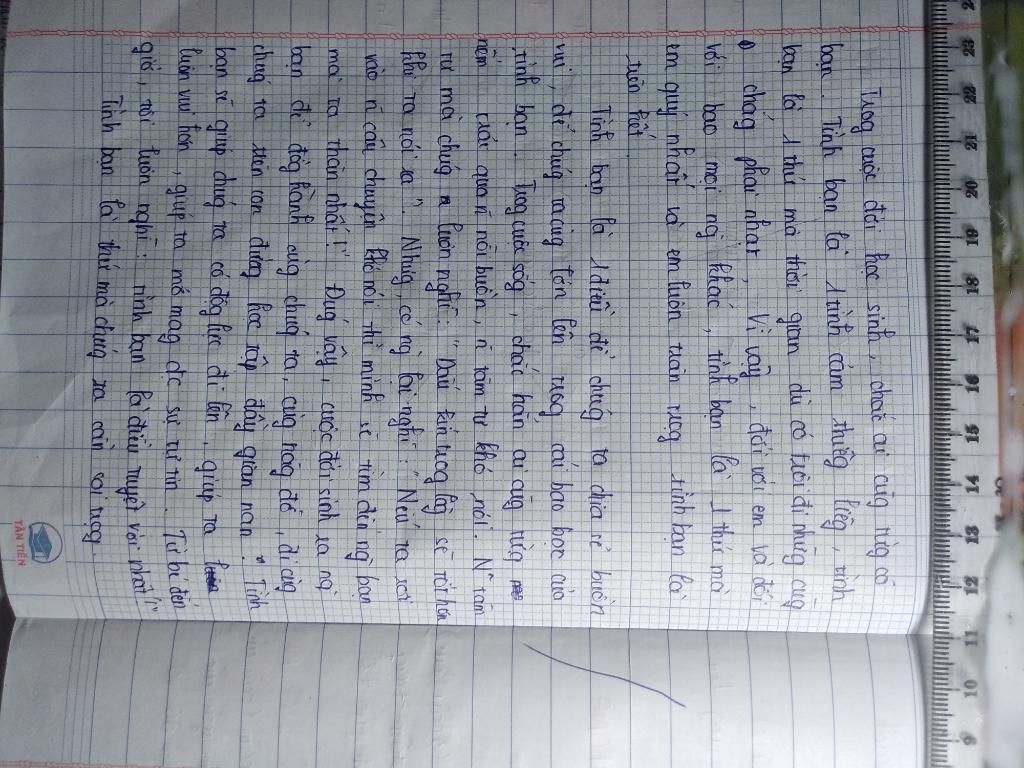 Trog cuộc đời học sinh, chắc ai cũg từg có
bạn. Tình bạn là 1 tình cảm thiêg liêg, tình
bạn là 1 thứ mà thời gian dù có trôi đi nhưg cũg
chẳg phai nhạt, Vì vậy, đối với em và đối
với bao mọi ng` khác, tình bạn là 1 thứ mà
em quý nhất và em luôn trân trọg tình bạn là
trên hết.
Tình bạn là 1 điều để chúg ta chia sẻ buồn
vui, để chúg ta cùg lớn lên trog cái bao bọc của
tình bạn. Trog cuộc sốg, chắc hẳn ai cũg từg
nếm trải qua n~ nỗi buồn, n~ tâm tư khó nói. N~ tâm
tư mà chúg ta luôn nghĩ: "Dấu kín trog lòg sẽ tốt hơn
khi ta nói ra". Nhưg, có ng` lại nghĩ: "Nếu ta rơi
vào n~ câu chuyện khó nói thì mình sẽ tìm đến ng` bạn
mà ta thân nhất!" Đúg vậy, cuộc đời sinh ra ng`
bạn để đồg hành cùg chúg ta, cùg nâg đỡ, đi cùg
chúg ta trên con đườg học tập đầy gian nan. "Tình
bạn sẽ giúp chúg ta có độg lực đi lên, giúp ta
luôn vui hơn, giúp ta mở mag đc sự tự tin. Từ bé đến
giờ, tôi luôn nghĩ: tình bạn là điều tuyệt vời nhất!"
Tình bạn là thứ mà chúg ta cần coi trọg
TÂN TIẾN
23 22 21 20 19 18 17 16 15 14 13 12 11 10 9